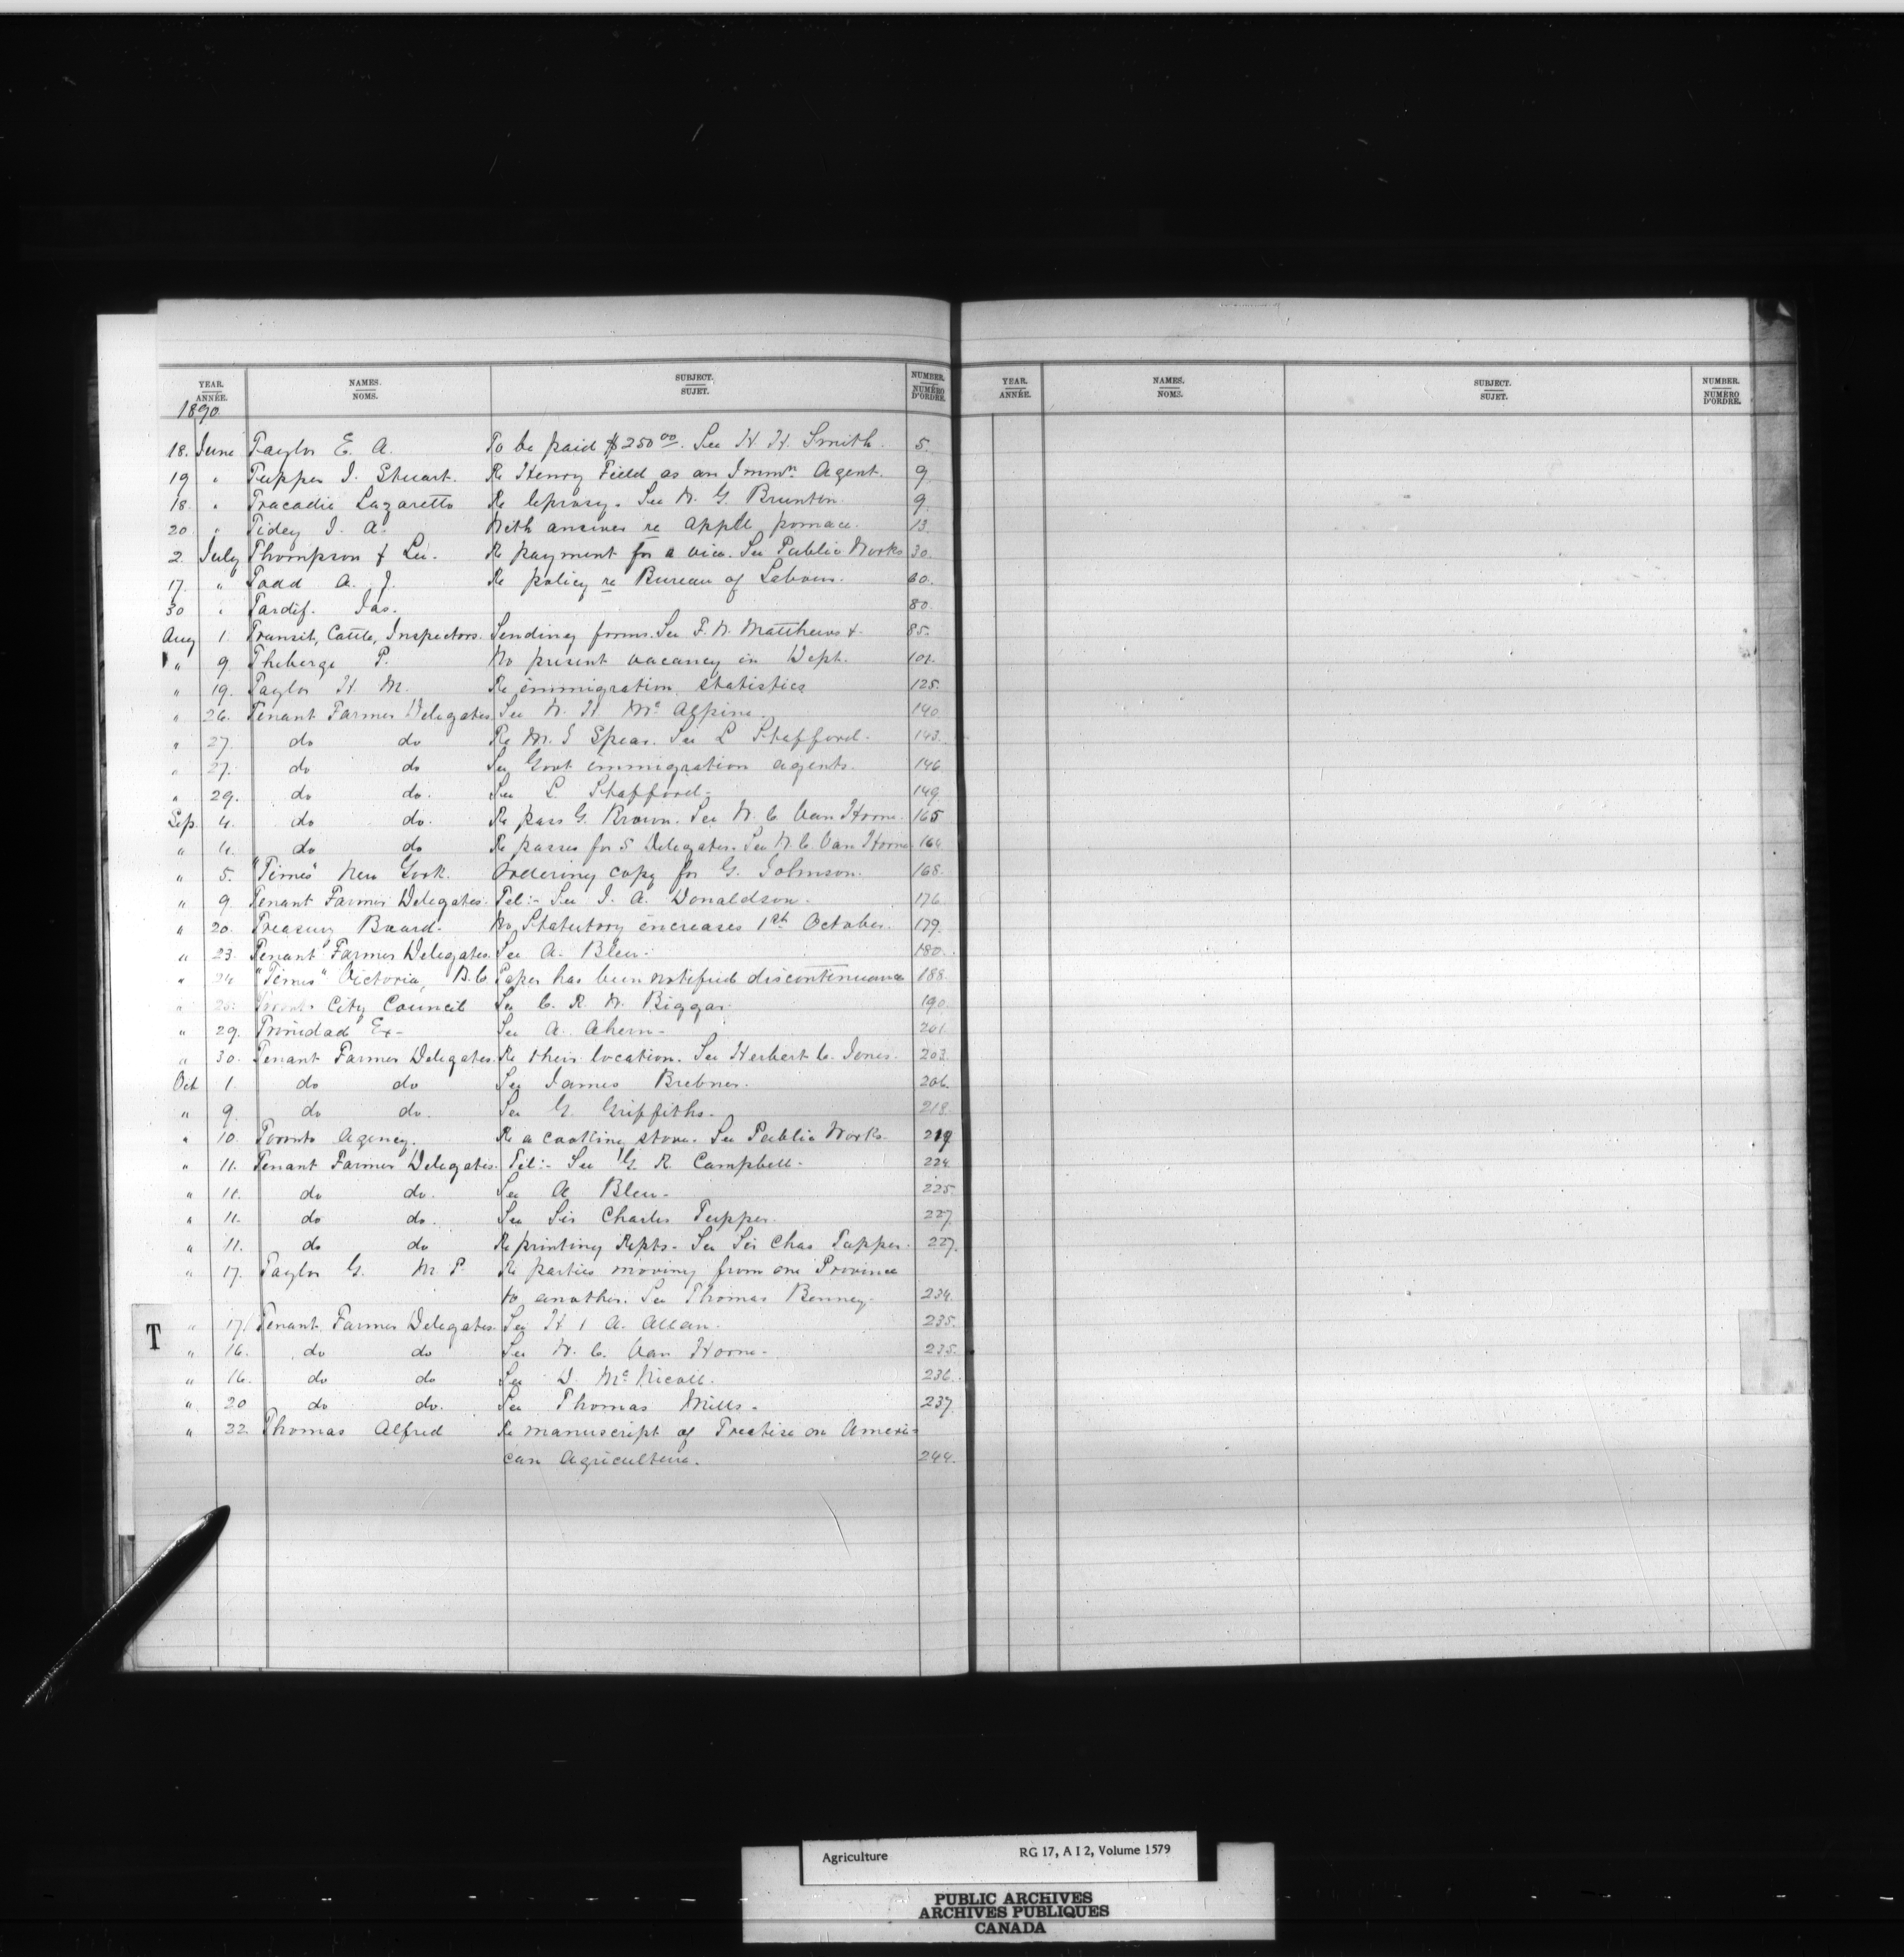 YEAR. ANNÉE. NAMES. NOMS. SUBJECT. SUJET. NUMBER. NUMÉRO D'ORDRE.
1890
18. June Taylor E. A. To be paid $250 00. See H. H. Smith. 5.
19 " Tupper J. Stuart. Re Henry Field as an Immn. Agent. 9
18. " Tracadie Lazaretto Re leprosy. See W. G. Brunton. 9.
20 " Tidey J. A. With answer re apple pomace. 13.
2. July Thompson & Re payment for a See Public Works 30.
17. " Todd A. J. Re policy re Bureau of Labour. 60.
30 " Tardif. Jas. 80.
Aug 1. Transit, Cattle, Inspectors. Sending forms. See F. W. Matthews &. 85.
" 9. Theberge P. No present vacancy in Dept. 101.
" 19. Taylor H. M. Re immigration statistics 125.
" 26. Tenant Farmer Delegates See W. H McAlpine 140
" 27. do do Re M. J Spear. See L Stafford. 143.
" 27. do do See Govt immigration agents. 146
" 29. do do. See L. Stafford- 149.
Sep. 4. do do. Re pass G. Brown. See W. C. Van Horne. 165
" 4. do do Re passes for 5 Delegates. See W. C. Van Horne. 164
" 5. "Times" New York. Ordering copy for G. Johnson. 168.
" 9. Tenant Farmer Delegates. Tel:- See J. A. Donaldson. 176
" 20. Treasury Board. No Statutory increases 1st October. 179.
" 23. Tenant Farmer Delegates. See A. Blew. 180.
" 24 "Times" Victoria, B.C. Paper has been notified discontinuance 188.
" 25. Toronto City Council See C. R. W. Biggar 190.
" 29. Trinidad Ex- See A. Ahern- 201.
" 30. Tenant Farmer Delegates. Re their location. See Herbert C. Jones. 203.
Oct 1. do do See James Brebner. 206.
" 9. do do. See G. Griffiths. 218.
" 10. Toronto Agency. Re a cooking stove. See Public Works. 219
" 11. Tenant Farmer Delegates. Tel:- See G. R. Campbell- 224.
" 11. do do. See A Blew- 225.
" 11. do do. See Sir Charles Tupper. 227.
" 11. do do Re printing Repts. See Sir Chas Tupper. 227.
" 17. Taylor G. M. P. Re parties moving from one Province
to another. See Thomas Benney- 234.
" 17. Tenant Farmer Delegates. See H & A. Allan. 235.
" 16. do do See W. C. Van Horne- 235.
" 16. do do See D. McNicoll. 236.
" 20 do do. See Thomas Mills- 237.
" 22 Thomas Alfred Re manuscript of Treatise on Ameri-
can Agriculture. 244.
T
YEAR. ANNÉE. NAMES. NOMS. SUBJECT. SUJET. NUMBER. NUMÉRO D'ORDRE.
Agriculture RG 17, A I 2, Volume 1579
PUBLIC ARCHIVES
ARCHIVES PUBLIQUES
CANADA